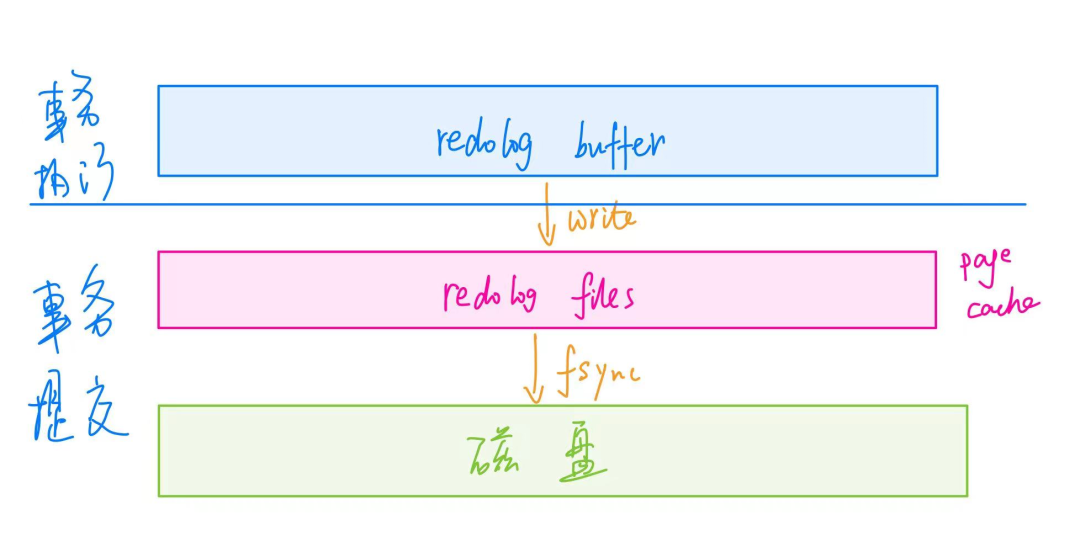 事务
执行
redolog buffer
write
redolog files
page
cache
fsync
事务
提交
磁盘